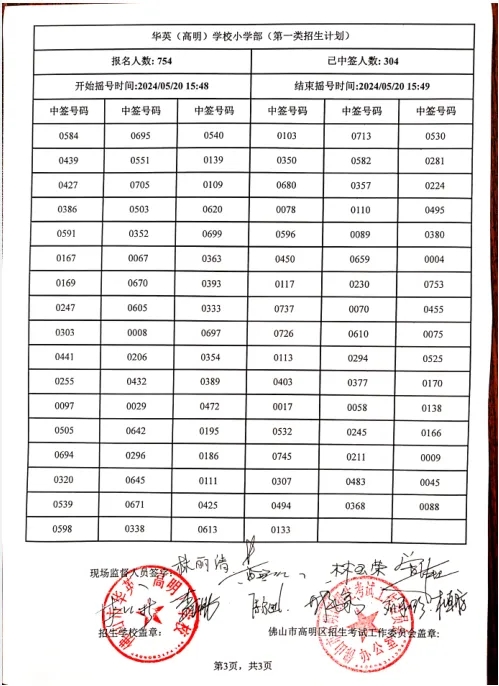 华英（高明）学校小学部（第一类招生计划）
报名人数:754 已中签人数:304
开始摇号时间:2024/05/20 15:48 结束摇号时间:2024/05/20 15:49
中签号码 中签号码 中签号码 中签号码 中签号码 中签号码
0584 0695 0540 0103 0713 0530
0439 0551 0139 0350 0582 0281
0427 0705 0109 0680 0357 0224
0386 0503 0620 0078 0110 0495
0591 0352 0699 0596 0089 0380
0167 0067 0363 0450 0659 0004
0169 0670 0393 0117 0230 0753
0247 0605 0333 0737 0070 0455
0303 0008 0697 0726 0610 0075
0441 0206 0354 0113 0294 0525
0255 0432 0389 0403 0377 0170
0097 0029 0472 0017 0058 0138
0505 0642 0195 0532 0245 0166
0694 0296 0186 0745 0211 0009
0320 0645 0111 0307 0483 0045
0539 0671 0425 0494 0368 0088
0598 0338 0613 0133
现场监督人员签字:
招生学校盖章: 佛山市高明区招生考试工作委员会盖章:
第3页，共3页